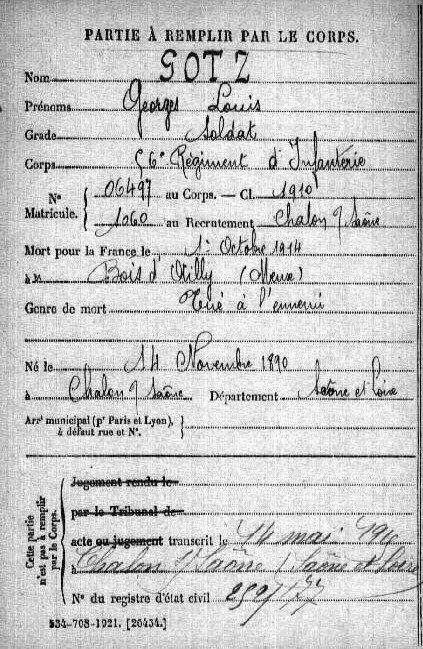 PARTIE À REMPLIR PAR LE CORPS.
Nom GOTZ
Prénoms Georges Louis
Grade Soldat
Corps 56e Régiment d'Infanterie
Nº Matricule. { 06497 au Corps. — Cl. 1910
1060 au Recrutement Chalon s/ Saône
Mort pour la France le 1er Octobre 1914
à Bois d'Ailly (Meuse)
Genre de mort Tué à l'ennemi
Né le 14 Novembre 1890
à Chalon s/ Saône Département Saône et Loire
Arrt municipal (pr Paris et Lyon), à défaut rue et Nº. }
Cette partie n'est pas à remplir par le Corps.
Jugement rendu le
par le Tribunal de
acte ou jugement transcrit le 14 mai
à Chalon s/ Saône (Saône et Loire
Nº du registre d'état civil
534-708-1921. [26434.]